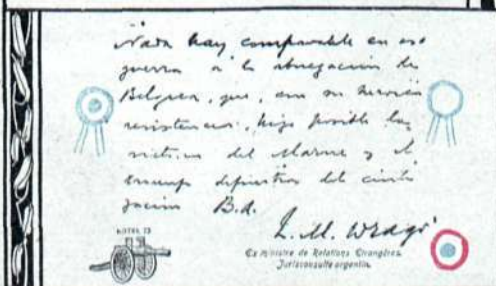 Nada hay comparable en esa
guerra a la abnegación de
Belgica, que, con su heroica
resistencia, hizo posible las
victorias del Marne y el
triunfo definitivo
B.A.
L. M. Drago
Ex ministre de Relations Etrangères.
Jurisconsulte argentin.
NOTRE 75